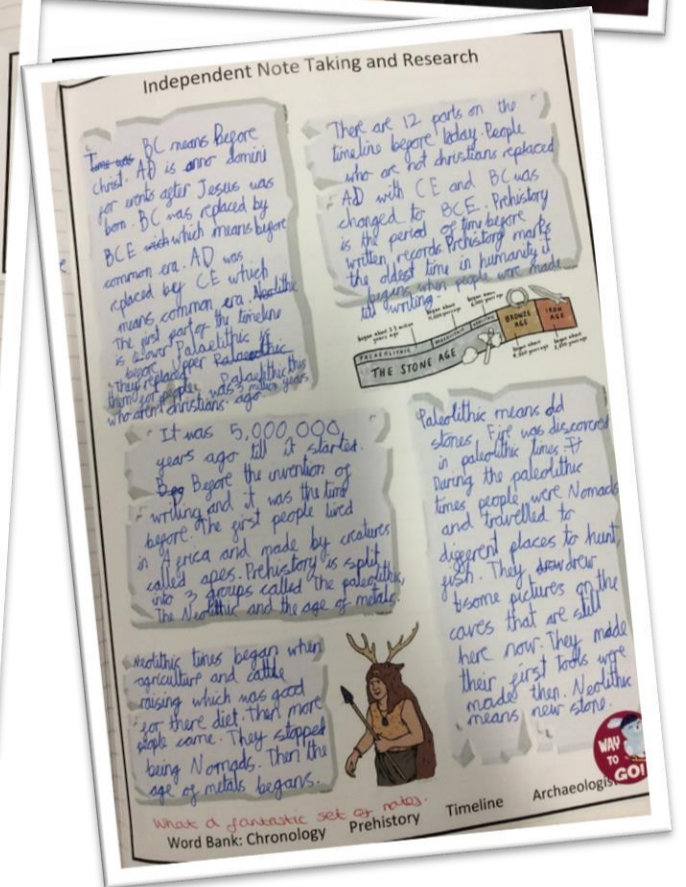 Independent Note Taking and Research
Time was BC means Before
christ. AD is anno domini
for wonts after Jesus was
born. BC was replaced by
BCE wich which means before
common era. AD was
replaced by CE which
means common era. Neolithic
The first part of the timeline
is Lower Palaelithic is
before Upper Palaeolithic
They replaced Palaelithic this
them for people was 3 million years
who aren't christians ago
There are 12 parts on the
timeline before today. People
who are not christians replaced
AD with CE and BC was
changed to BCE. Prehistory
is the period of time before
written records. Prehistory marks
the oldest time in humanity it
begans when people were made
till writing
began about 3.3 million
years ago
PALAEOLITHIC
THE STONE AGE
BRONZE
AGE
IRON
AGE
It was 5,000,000
years ago till it started.
Beg Before the invention of
writing and it was the time
before. The first people lived
in Africa and made by creatures
called apes. Prehistory is split
into 3 groups called The paleolithic,
The Neolithic and the age of metals.
Paleolithic means old
stones. Fire was discovered
in paleolithic times. It
During the paleolithic
times people were Nomads
and travelled to
different places to hunt,
fish. They draw drew
some pictures on the
caves that are still
here now. They made
their first tools were
made then. Neolithic
means new stone.
Neolithic times began when
agriculture and cattle
raising which was good
for there diet. Then more
people came. They stopped
being Nomads. Then the
age of metals begans.
WAY
TO
GO!
What a fantastic set of notes.
Word Bank: Chronology Prehistory Timeline Archaeologist